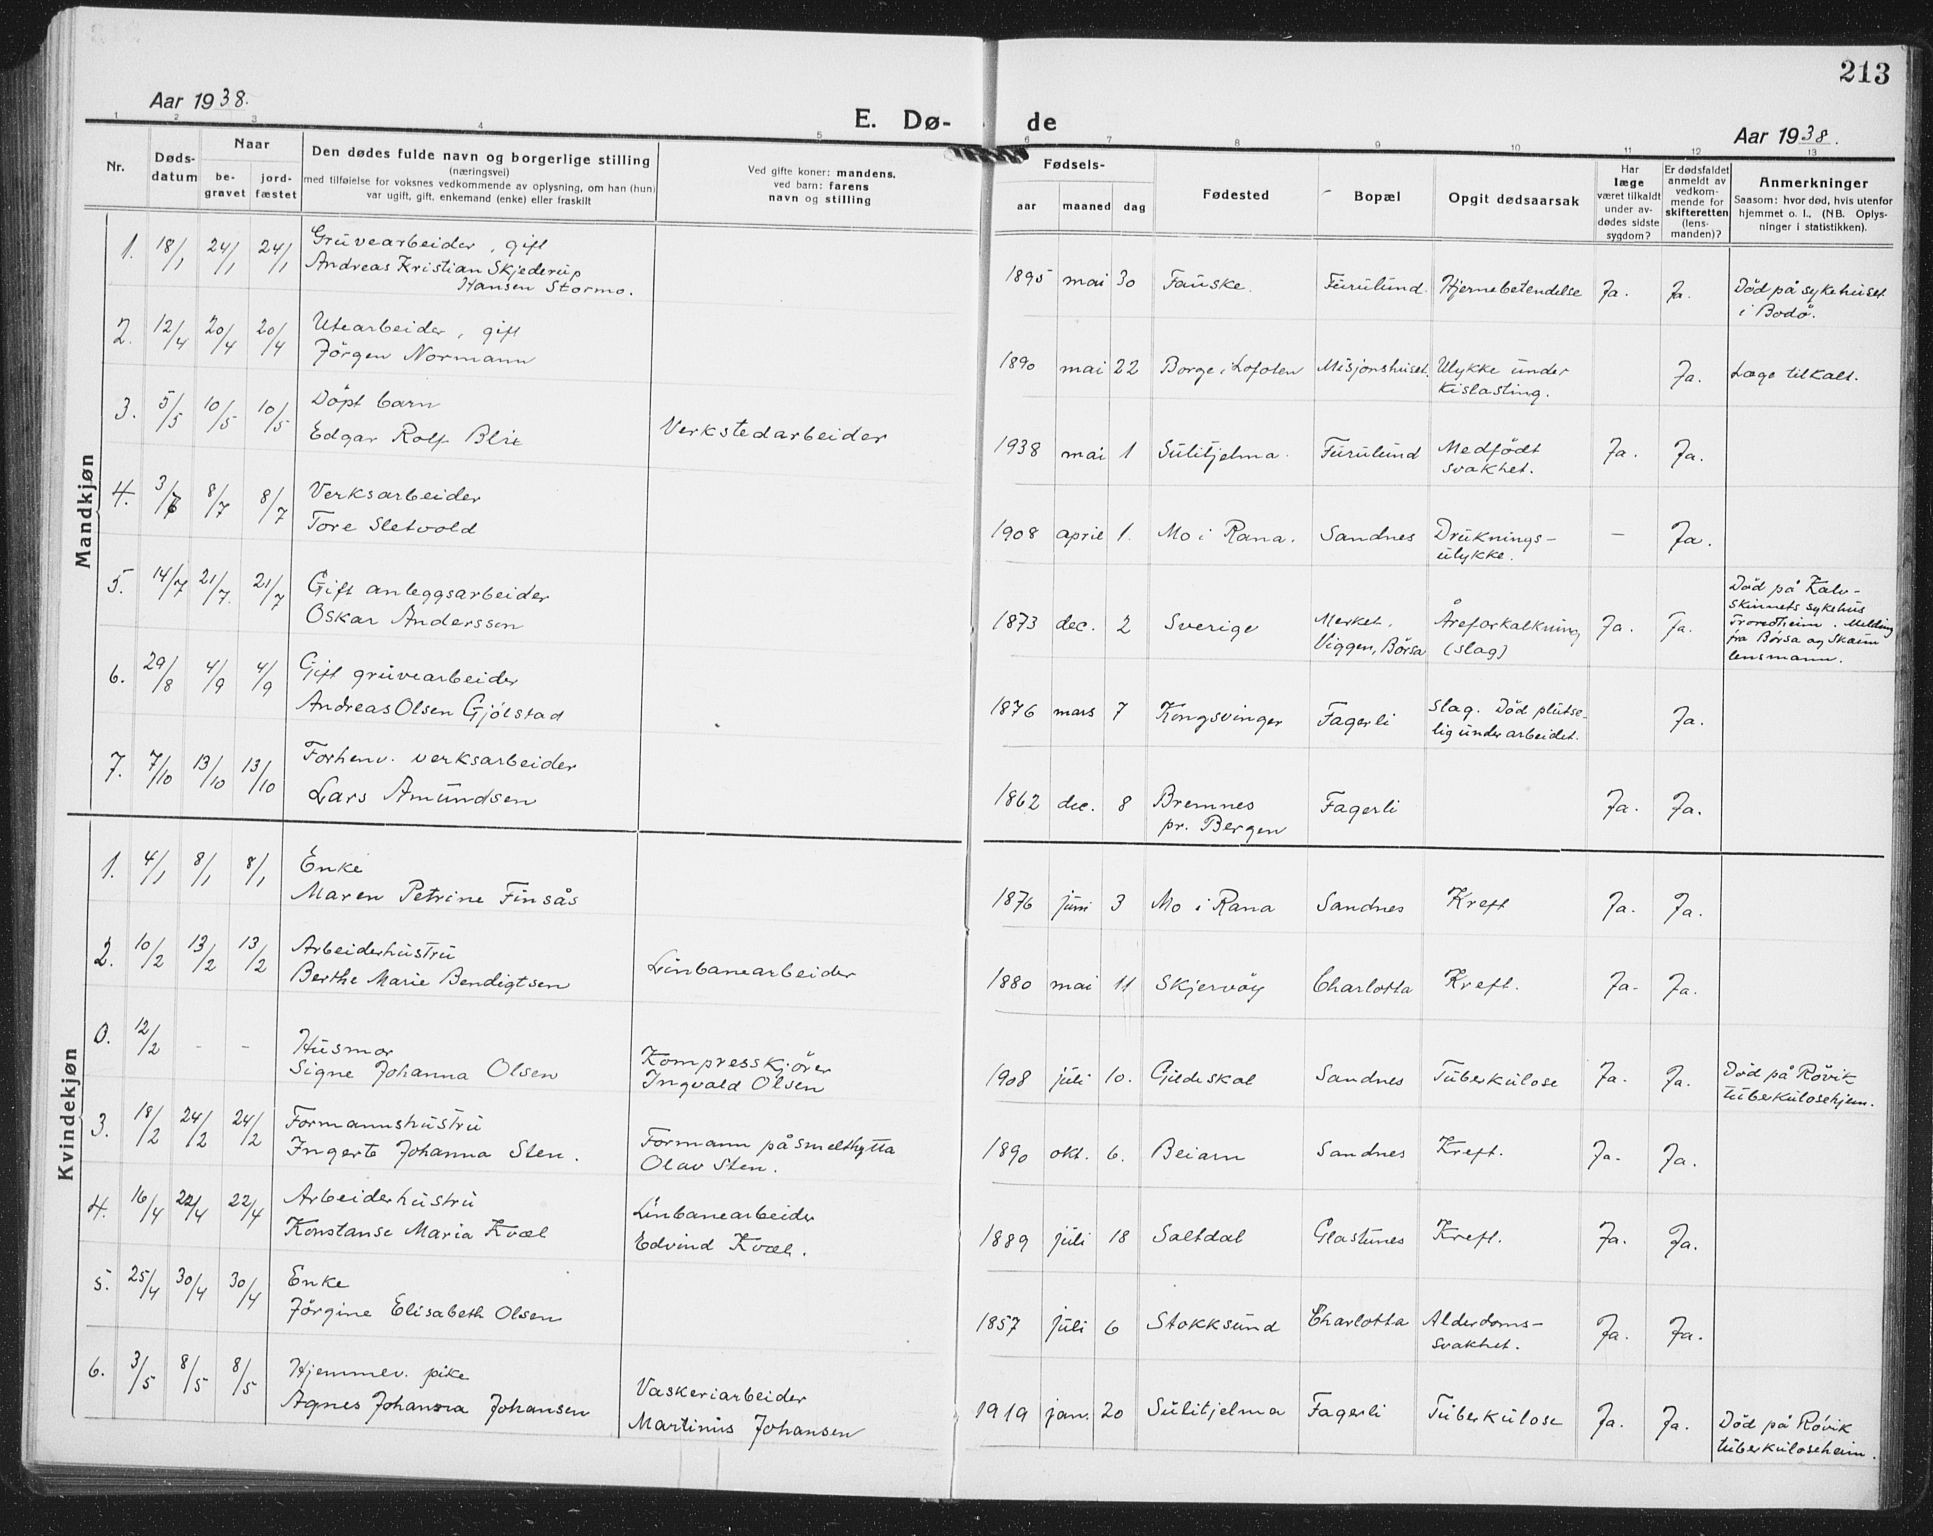 213
Aar 1938.
E. Dø-
de
Aar 1938.
1 2 3 4 5 6 7 8 9 10 11 12 13
Nr.
Døds-
datum
Naar
be-
gravet
jord-
fæstet
Den dødes fulde navn og borgerlige stilling
(næringsvei)
med tilføielse for voksnes vedkommende av oplysning, om han (hun)
var ugift, gift, enkemand (enke) eller fraskilt
Ved gifte koner: mandens.
ved barn: farens
navn og stilling
Fødsels-
aar maaned dag
Fødested
Bopæl
Opgit dødsaarsak
Har
læge
været tilkaldt
under av-
dødes sidste
sygdom?
Er dødsfaldet
anmeldt av
vedkom-
mende for
skifteretten
(lens-
manden)?
Anmerkninger
Saasom: hvor død, hvis utenfor
hjemmet o. l., (NB. Oplys-
ninger i statistikken).
Mandkjøn
1. 18/1 24/1 24/1 Gruvearbeider, gift
Andreas Kristian Skjederup
Hansen Stormo.
1895 mai 30 Fauske. Furulund. Hjernebetendelse Ja. Ja. Död på sykehuset
i Bodö.
2. 12/4 20/4 20/4 Utearbeider, gift
Jörgen Normann
1890 mai 22 Borge i Lofoten Misjonshuset. Ulykke under
kislasting.
Ja. Læge tilkalt.
3. 5/5 10/5 10/5 Döpt barn
Edgar Rolf Blix Verkstedarbeider
1938 mai 1 Sulitjelma. Furulund Medfödt
svakhet.
Ja. Ja.
4. 3/7 8/7 8/7 Verksarbeider
Tore Sletvold
1908 april 1. Mo i Rana. Sandnes Druknings-
ulykke.
- Ja.
5. 14/7 21/7. 21/7 Gift anleggsarbeider
Oskar Andersson
1873 dec. 2 Sverige Merket,
Viggen, Börsa
Åreforkalkning
(slag)
Ja. Ja.
Död på Kalv-
skinnets sykehus
Trondheim. Melding
fra Börsa og Skaun
lensmann.
6. 29/8 4/9 4/9 Gift gruvearbeider
Andreas Olsen Gjölstad
1876 mars 7 Kongsvinger Fagerli Slag. Död plutse-
lig under arbeidet.
Ja.
7. 7/10 13/10 13/10 Forhenv. verksarbeider
Lars Amundsen
1862 dec. 8 Bremnes
pr. Bergen
Fagerli Ja. Ja.
Kvindekjøn
1. 4/1 8/1 8/1 Enke
Maren Petrine Finsås
1876 juni 3 Mo i Rana Sandnes Kreft Ja. Ja.
2. 10/2 13/2 13/2 Arbeiderhustru
Berthe Marie Bendigtsen Linbanearbeider
1880 mai 11 Skjervöy Charlotta Kreft. Ja. Ja.
0. 12/2 - - Husmor
Signe Johanna Olsen
Kompresskjörer
Ingvald Olsen
1908 juli 10. Gildeskal Sandnes Tuberkulose Ja. Ja. Död på Rövik
tuberkulosehjem.
3. 18/2 24/2 24/2 Formannshustru
Ingerte Johanna Sten.
Formann på smelthytta
Olav Sten.
1890 okt. 6. Beiarn Sandnes Kreft. Ja. Ja.
4. 16/4 22/4 22/4 Arbeiderhustru
Konstanse Maria Kvæl
Linbanearbeider
Edvind Kvæl.
1889 juli 18 Saltdal Glastunes Kreft. Ja. Ja.
5. 25/4 30/4 30/4 Enke
Jörgine Elisabeth Olsen
1857 juli 6 Stokksund Charlotta Alderdoms-
svakhet.
Ja. Ja.
6. 3/5 8/5 8/5 Hjemmev. pike
Agnes Johanna Johansen
Vaskeriarbeider
Martinus Johansen
1919 jan. 20 Sulitjelma Fagerli Tuberkulose Ja. Ja. Död på Rövik
tuberkuloseheim.